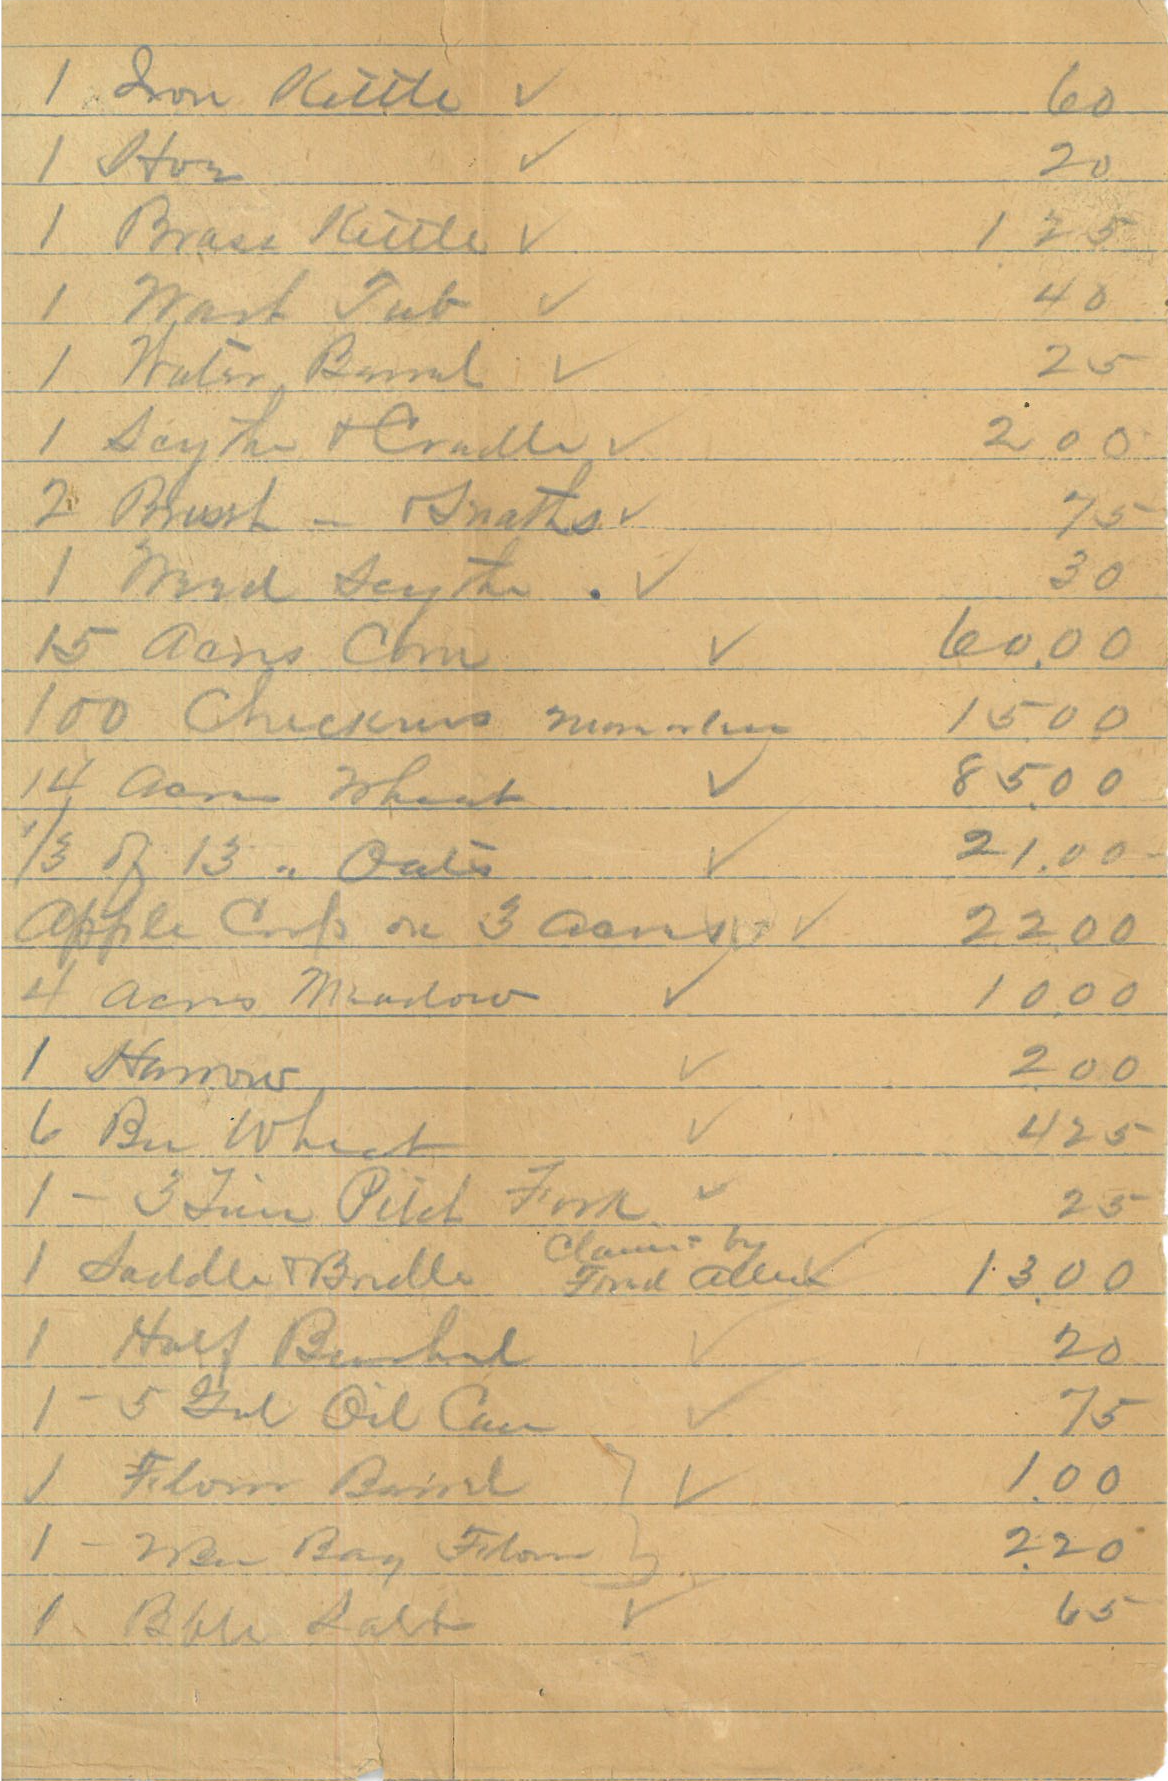 1 Iron Kettle ✓ 60
1 Hoe ✓ 20
1 Brass Kettle ✓ 1 25
1 Wash Tub ✓ 40
1 Water Barrel ✓ 25
1 Scythe & Cradle ✓ 2 00
2 Brush — & Snaths ✓ 75
1 Weed Scythe . ✓ 30
15 Acres Corn ✓ 60.00
100 Chickens more or less 15.00
14 Acres Wheat ✓ 85.00
1/3 of 13 " Oats ✓ 21.00
Apple Crop on 3 Acres ✓ 22.00
4 Acres Meadow ✓ 10.00
1 Harrow ✓ 2.00
6 Bu Wheat ✓ 4 25
1 - 3 Tine Pitch Fork ✓ 25
Claimed by
1 Saddle & Bridle Allen ✓ 13.00
1 Half Bushel ✓ 20
1 - 5 Gal Oil Can ✓ 75
1 Flour Barrel } ✓ 1.00
1 - Bag Flour } 2.20
1 Bble Salt ✓ 65